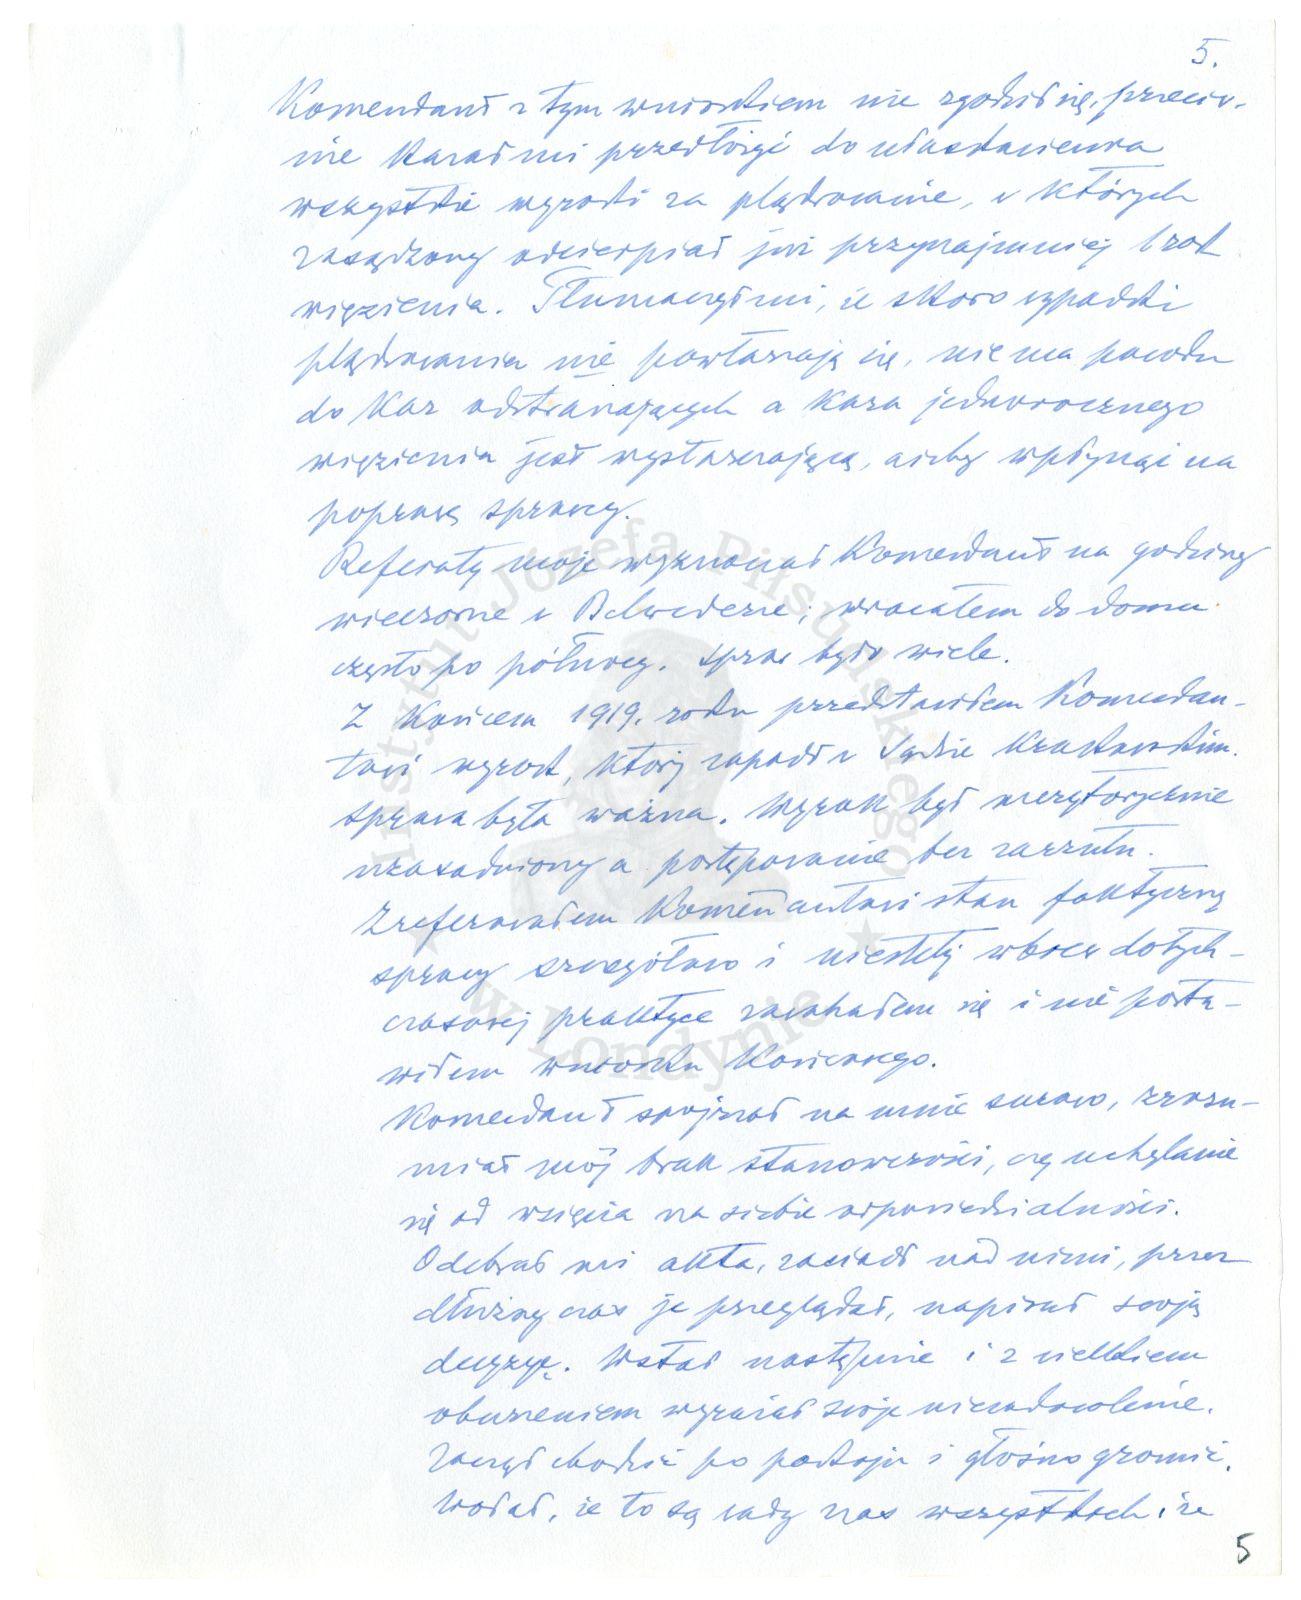 5.
Komendant z tym wnioskiem nie zgodził się, przeciw-
nie kazał mi przedłożyć do ułaskawienia
wszystkie wyroki za plądrowanie, w których
zasądzony odcierpiał już przynajmniej 1 rok
więzienia. Tłumaczył mi, że skoro wypadki
plądrowania nie powtarzają się, nie ma powodu
do kar odstraszających a kara jednorocznego
więzienia jest wystarczającą, ażeby wpłynąć na
poprawę sprawcy.
Referaty moje wyznaczał Komendant na godziny
wieczorne w Belwederze; wracałem do domu
często po północy. Spraw było wiele.
Z końcem 1919. roku przedstawiłem Komendan-
towi wyrok, który zapadł w Sądzie Krakowskim.
Sprawa była ważna. Wyrok był merytorycznie
uzasadniony a postępowanie bez zarzutu.
Zreferowałem Komendantowi stan faktyczny
sprawy szczegółowo i niestety wbrew dotych-
czasowej praktyce zawahałem się i nie posta-
wiłem wniosku końcowego.
Komendant spojrzał na mnie surowo, zrozu-
miał mój brak stanowczości, czy uchylanie
się od wzięcia na siebie odpowiedzialności.
Odebrał mi akta, zasiadł nad nimi, przez
dłuższy czas je przeglądał, napisał swoją
decyzję. Wstał następnie i z wielkiem
oburzeniem wyraził swoje niezadowolenie.
Zaczął chodzić po pokoju i głośno gromić.
Wołał, że to są wady nas wszystkich, że
5
Instytut Józefa Piłsudskiego
★ w Londynie ★